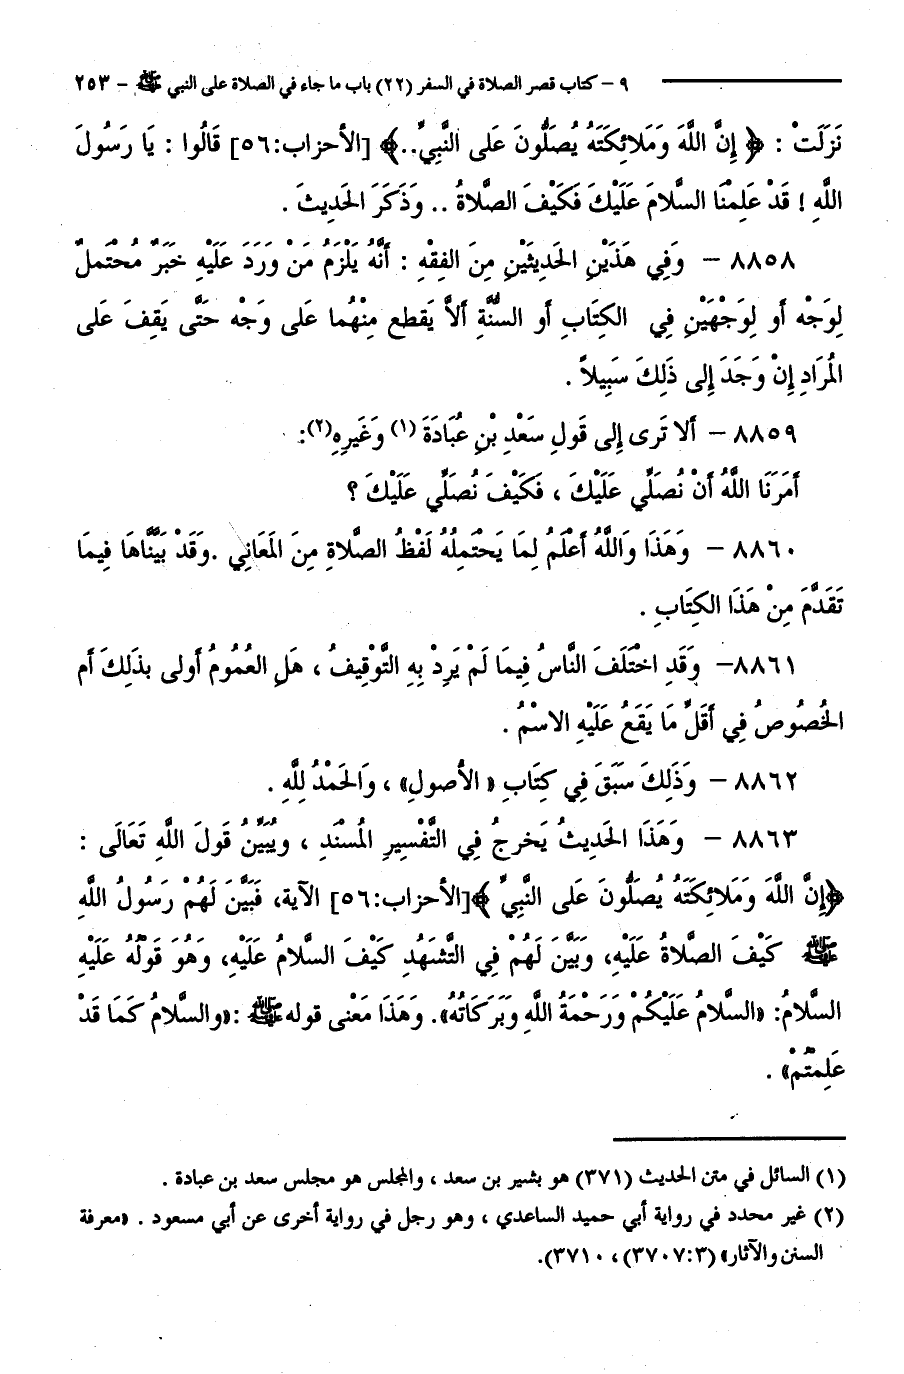 ٩ – كتاب قصر الصلاة في السفر (٢٢) باب ما جاء في الصلاة على النبي ﷺ – ٢٥٣
نَزَلَتْ : ﴿ إِنَّ اللَّهَ وَمَلَائِكَتَهُ يُصَلُّونَ عَلى النَّبِيِّ..﴾ [الأحزاب:٥٦] قَالُوا : يَا رَسُولَ
اللَّهِ ! قَدْ عَلِمْنَا السَّلامَ عَلَيْكَ فَكَيْفَ الصَّلاةُ .. وَذَكَرَ الحَدِيثَ .
٨٨٥٨ – وَفِي هَذَيْنِ الحَدِيثَيْنِ مِنَ الفِقْهِ : أَنَّهُ يَلْزَمُ مَنْ وَرَدَ عَلَيْهِ خَبَرٌ مُحْتَملٌ
لِوَجْه أَو لِوَجْهَيْنِ فِي الكِتَابِ أَو السُّنَّةِ أَلاَّ يَقطع مِنْهُما عَلى وَجْه حَتَّى يَقِفَ عَلى
المُرَادِ إِنْ وَجَدَ إِلى ذَلِكَ سَبِيلاً .
٨٨٥٩ – أَلا تَرى إِلى قَولِ سَعْدِ بْنِ عُبَادَةَ (١) وَغَيرِهِ(٢):
أَمَرَنَا اللَّهُ أَنْ نُصَلِّي عَلَيْكَ ، فَكَيْفَ نُصَلِّي عَلَيْكَ ؟
٨٨٦٠ – وَهَذَا وَاللَّهُ أَعْلَمُ لِمَا يَحْتَمِلُهُ لَفْظُ الصَّلاةِ مِنَ المَعَانِي .وَقَدْ بَيَّنَّاهَا فِيمَا
تَقَدَّمَ مِنْ هَذَا الكِتَابِ .
٨٨٦١– وَقَدِ اخْتَلَفَ النَّاسُ فِيمَا لَمْ يَرِدْ بِهِ التَّوْقِيفُ ، هَلِ العُمُومُ أَولى بذَلِكَ أَم
الخُصُوصُ فِي أَقَلِّ مَا يَقَعُ عَلَيْهِ الاسْمُ .
٨٨٦٢ – وَذَلِكَ سَبَقَ فِي كِتَابِ « الأُصولِ» ، وَالحَمْدُ لِلَّهِ .
٨٨٦٣ – وَهَذَا الحَدِيثُ يَخرجُ فِي التَّفْسِيرِ المُسْنَدِ ، ويُبَيِّنُ قَولَ اللَّهِ تَعَالَى :
﴿إِنَّ اللَّهَ وَمَلائِكَتَهُ يُصَلُّونَ عَلى النَّبِيِّ ﴾[الأحزاب:٥٦] الآية، فَبَيَّنَ لَهُمْ رَسُولُ اللَّهِ
ﷺ كَيْفَ الصَّلاةُ عَلَيْهِ، وَبَيَّنَ لَهُمْ فِي التَّشَهُدِ كَيفَ السَّلامُ عَلَيْهِ، وَهُوَ قَوْلُهُ عَلَيْهِ
السَّلامُ: «السَّلامُ عَلَيْكُمْ وَرَحْمَةُ اللَّهِ وَبَرَكَاتُهُ». وَهَذَا مَعْنى قوله ﷺ :«والسَّلامُ كَمَا قَدْ
عَلِمْتُمْ» .
(١) السائل في متن الحديث (٣٧١) هو بشير بن سعد ، والمجلس هو مجلس سعد بن عبادة .
(٢) غير محدد في رواية أبي حميد الساعدي ، وهو رجل في رواية أخرى عن أبي مسعود . «معرفة
السنن والآثار» (٣٧٠٧:٣) ، ٣٧١٠).